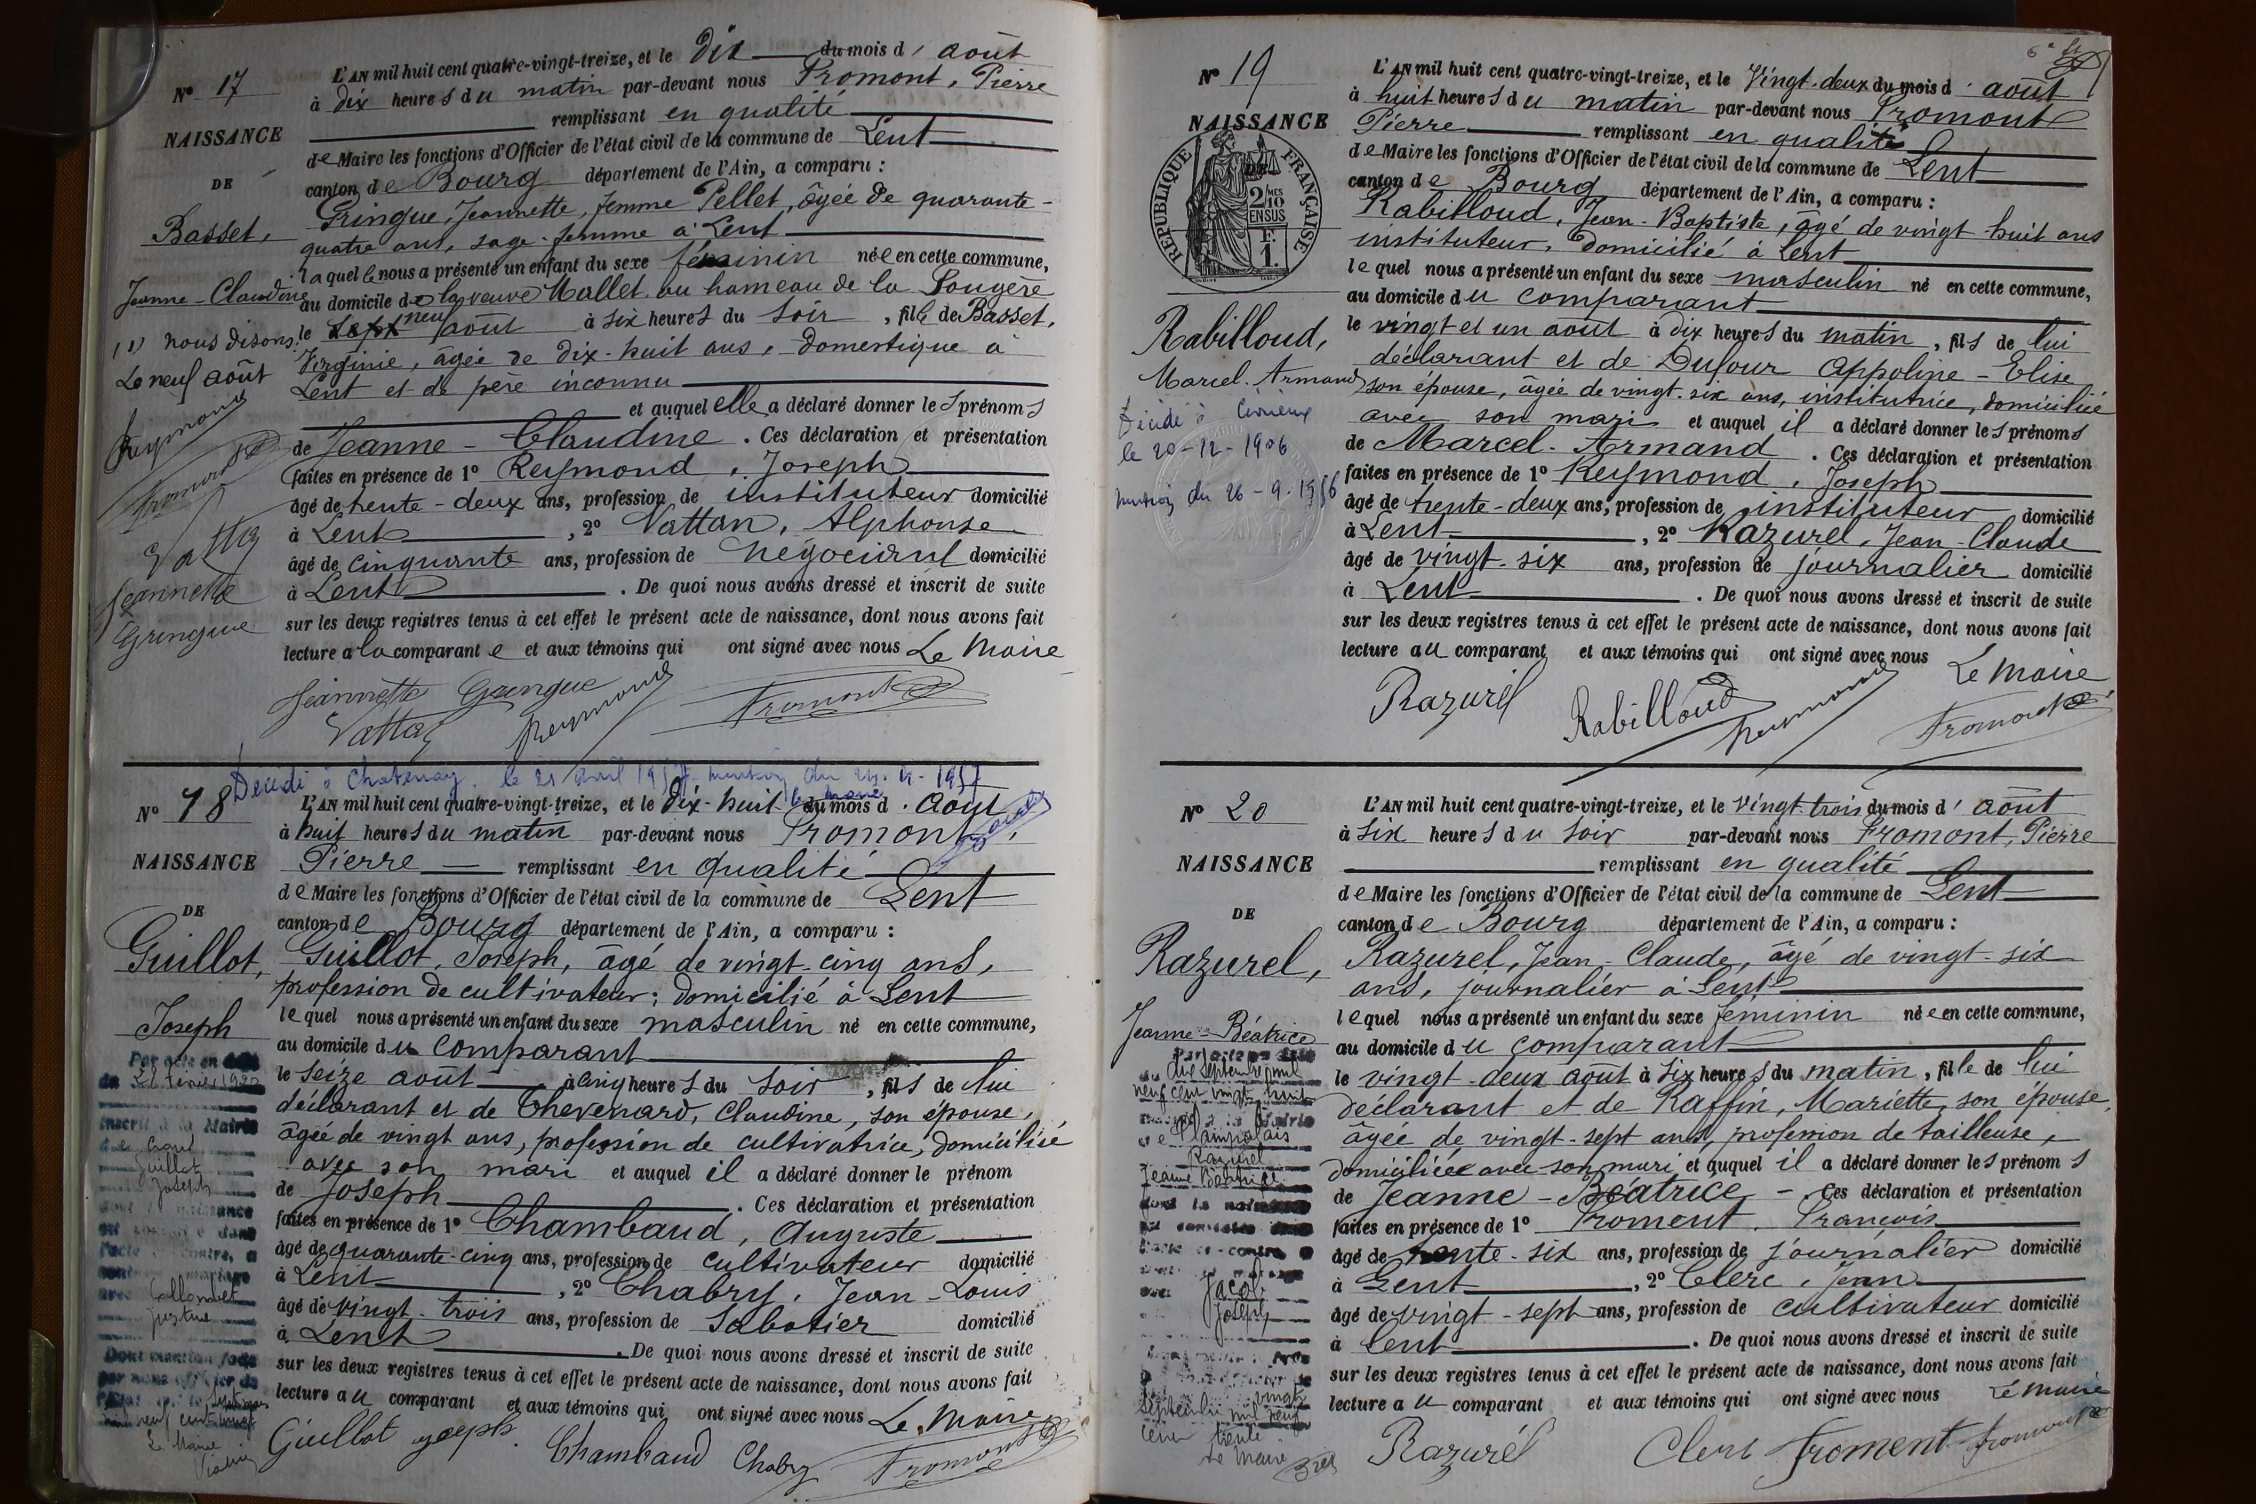 N° 17
NAISSANCE
DE
Basset,
Jeanne-Claudine
(1) nous disons:
Le neuf août
Reymond
Fromont
Vattan
Jeannette
Gringue
L'AN mil huit cent quatre-vingt-treize, et le dix du mois d'août
à dix heures du matin par-devant nous Fromont, Pierre
remplissant en qualité
de Maire les fonctions d'Officier de l'état civil de la commune de Lent
canton de Bourg département de l'Ain, a comparu :
Gringue, Jeannette, femme Pellet, âgée de quarante-
quatre ans, sage-femme à Lent
laquelle nous a présenté un enfant du sexe féminin née en cette commune,
au domicile de la veuve Mallet au hameau de la Fougère
le neuf août à six heures du soir, fille de Basset,
Virginie, âgée de dix-huit ans, domestique à
Lent et de père inconnu
et auquel elle a déclaré donner les prénoms
de Jeanne-Claudine. Ces déclaration et présentation
faites en présence de 1° Reymond, Joseph
âgé de trente-deux ans, profession de instituteur domicilié
à Lent, 2° Vattan, Alphonse
âgé de cinquante ans, profession de négociant domicilié
à Lent. De quoi nous avons dressé et inscrit de suite
sur les deux registres tenus à cet effet le présent acte de naissance, dont nous avons fait
lecture a la comparante et aux témoins qui ont signé avec nous Le Maire
Jeannette Gringue
Vattan Reymond Fromont
Décédé à Chatenay le 21 avril 1957 mention du 24.4.1957
le maire
N° 18
NAISSANCE
DE
Guillot,
Joseph
Par acte en date
inscrit à la Mairie
Guillot
Joseph
Collombet
Justine
Dont mention faite
Le Maire
L'AN mil huit cent quatre-vingt-treize, et le dix-huit du mois d'août
à huit heures du matin par-devant nous Fromont,
Pierre remplissant en qualité
de Maire les fonctions d'Officier de l'état civil de la commune de Lent
canton de Bourg département de l'Ain, a comparu :
Guillot, Joseph, âgé de vingt-cinq ans,
profession de cultivateur; domicilié à Lent
lequel nous a présenté un enfant du sexe masculin né en cette commune,
au domicile du comparant
le seize août à cinq heures du soir, fils de lui
déclarant et de Thevenard, Claudine, son épouse,
âgée de vingt ans, profession de cultivatrice, domiciliée
avec son mari et auquel il a déclaré donner le prénom
de Joseph. Ces déclaration et présentation
faites en présence de 1° Chambaud, Auguste
âgé de quarante-cinq ans, profession de cultivateur domicilié
à Lent, 2° Chabry, Jean-Louis
âgé de vingt-trois ans, profession de sabotier domicilié
à Lent. De quoi nous avons dressé et inscrit de suite
sur les deux registres tenus à cet effet le présent acte de naissance, dont nous avons fait
lecture au comparant et aux témoins qui ont signé avec nous Le Maire
Guillot Joseph Chambaud Chabry Fromont
6e ft
N° 19
NAISSANCE
DE
RÉPUBLIQUE FRANÇAISE
2/10 EN SUS
F. 1.
Rabilloud,
Marcel-Armand
Décédé à Civrieux
le 20-12-1956
mention du 26-9-1956
L'AN mil huit cent quatre-vingt-treize, et le vingt-deux du mois d'août
à huit heures du matin par-devant nous Fromont
Pierre remplissant en qualité
de Maire les fonctions d'Officier de l'état civil de la commune de Lent
canton de Bourg département de l'Ain, a comparu :
Rabilloud, Jean-Baptiste, âgé de vingt huit ans
instituteur, domicilié à Lent
lequel nous a présenté un enfant du sexe masculin né en cette commune,
au domicile du comparant
le vingt et un août à dix heures du matin, fils de lui
déclarant et de Dufour Appoline-Elise
son épouse, âgée de vingt-six ans, institutrice, domiciliée
avec son mari et auquel il a déclaré donner les prénoms
de Marcel-Armand. Ces déclaration et présentation
faites en présence de 1° Reymond, Joseph
âgé de trente-deux ans, profession de instituteur domicilié
à Lent, 2° Razurel, Jean-Claude
âgé de vingt-six ans, profession de journalier domicilié
à Lent. De quoi nous avons dressé et inscrit de suite
sur les deux registres tenus à cet effet le présent acte de naissance, dont nous avons fait
lecture au comparant et aux témoins qui ont signé avec nous Le Maire
Razurel Rabilloud Reymond Fromont
N° 20
NAISSANCE
DE
Razurel,
Jeanne-Béatrice
dix septembre mil
neuf cent vingt huit
Razurel
Jeanne Béatrice
Jacob
Joseph
vingt
septembre mil neuf
cent trente
Le Maire
L'AN mil huit cent quatre-vingt-treize, et le vingt-trois du mois d'août
à six heures du soir par-devant nous Fromont, Pierre
remplissant en qualité
de Maire les fonctions d'Officier de l'état civil de la commune de Lent
canton de Bourg département de l'Ain, a comparu :
Razurel, Jean-Claude, âgé de vingt-six
ans, journalier à Lent
lequel nous a présenté un enfant du sexe féminin née en cette commune,
au domicile du comparant
le vingt-deux août à six heures du matin, fille de lui
déclarant et de Raffin, Mariette, son épouse,
âgée de vingt-sept ans, profession de tailleuse,
domiciliée avec son mari et auquel il a déclaré donner les prénoms
de Jeanne-Béatrice. Ces déclaration et présentation
faites en présence de 1° Froment, François
âgé de trente-six ans, profession de journalier domicilié
à Lent, 2° Clerc, Jean
âgé de vingt-sept ans, profession de cultivateur domicilié
à Lent. De quoi nous avons dressé et inscrit de suite
sur les deux registres tenus à cet effet le présent acte de naissance, dont nous avons fait
lecture au comparant et aux témoins qui ont signé avec nous Le Maire
Razurel Clerc Froment Fromont